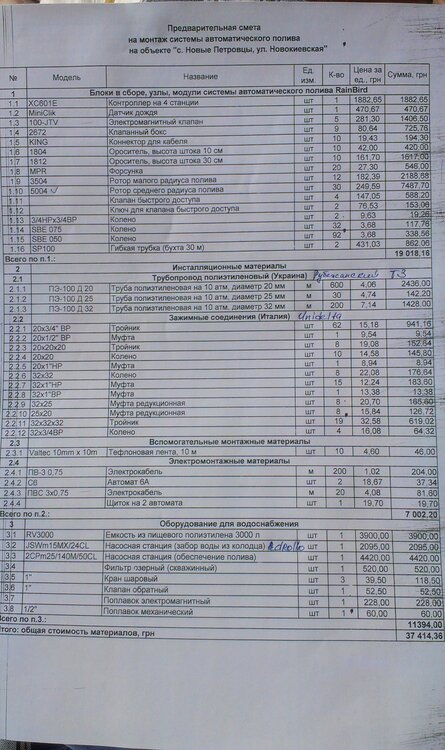 Предварительная смета
на монтаж системы автоматического полива
на объекте "с. Новые Петровцы, ул. Новокиевская"
№ Модель Название Ед. изм. К-во Цена за ед., грн Сумма, грн
1 Блоки в сборе, узлы, модули системы автоматического полива RainBird
1.1 XC601E Контроллер на 4 станции шт 1 1882,65 1882,65
1.2 MiniClik Датчик дождя шт 1 470,67 470,67
1.3 100-JTV Электромагнитный клапан шт 5 281,30 1406,50
1.4 2672 Клапанный бокс шт 9 80,64 725,76
1.5 KING Коннектор для кабеля шт 10 19,43 194,30
1.6 1804 Ороситель, высота штока 10 см шт 10 42,00 420,00
1.7 1812 Ороситель, высота штока 30 см шт 10 161,70 1617,00
1.8 MPR Форсунка шт 20 27,30 546,00
1.9 3504 Ротор малого радиуса полива шт 12 182,39 2188,68
1.10 5004 Ротор среднего радиуса полива шт 30 249,59 7487,70
1.11 Клапан быстрого доступа шт 4 147,05 588,20
1.12 Ключ для клапана быстрого доступа шт 2 76,53 153,06
1.13 3/4НРх3/4ВР Колено шт 2 9,63 19,26
1.14 SBE 075 Колено шт 32 3,68 117,76
1.15 SBE 050 Колено шт 92 3,68 338,56
1.16 SP100 Гибкая трубка (бухта 30 м) шт 2 431,03 862,06
Всего по п.1.: 19 018,16
2 Инсталляционные материалы
2.1 Трубопровод полиэтиленовый (Украина)
2.1.1 ПЭ-100 Д 20 Труба полиэтиленовая на 10 атм, диаметр 20 мм м 600 4,06 2436,00
2.1.2 ПЭ-100 Д 25 Труба полиэтиленовая на 10 атм, диаметр 25 мм м 30 4,74 142,20
2.1.3 ПЭ-100 Д 32 Труба полиэтиленовая на 10 атм, диаметр 32 мм м 200 7,14 1428,00
2.2 Зажимные соединения (Италия) Unidelta
2.2.1 20х3/4" ВР Тройник шт 62 15,18 941,16
2.2.2 20х1/2" ВР Муфта шт 1 9,54 9,54
2.2.3 20х20х20 Тройник шт 8 19,08 152,64
2.2.4 20х20 Колено шт 10 14,58 145,80
2.2.5 20х1"НР Муфта шт 1 8,94 8,94
2.2.6 32х32 Колено шт 8 22,08 176,64
2.2.7 32х1"НР Муфта шт 15 12,24 183,60
2.2.8 32х1"ВР Муфта шт 1 13,38 13,38
2.2.9 32х25 Муфта редукционная шт 8 20,70 165,60
2.2.10 25х20 Муфта редукционная шт 8 15,84 126,72
2.2.11 32х32х32 Тройник шт 19 32,58 619,02
2.2.12 32х3/4ВР Колено шт 4 16,08 64,32
2.3 Вспомогательные монтажные материалы
2.3.1 Valtec 10mm x 10m Тефлоновая лента, 10 м шт 10 4,60 46,00
2.4 Электромонтажные материалы
2.4.1 ПВ-3 0,75 Электрокабель м 200 1,02 204,00
2.4.2 С6 Автомат 6А шт 2 18,67 37,34
2.4.3 ПВС 3х0,75 Электрокабель м 20 4,08 81,60
2.4.4 Щиток на 2 автомата шт 1 19,70 19,70
Всего по п.2.: 7 002,20
3 Оборудование для водоснабжения
3.1 RV3000 Емкость из пищевого полиэтилена 3000 л шт 1 3900,00 3900,00
3.2 JSWm15MX/24CL Насосная станция (забор воды из колодца) шт 1 2095,00 2095,00
3.3 2CPm25/140M/50CL Насосная станция (обеспечение полива) шт 1 4420,00 4420,00
3.4 Фильтр озерный (скважинный) шт 1 520,00 520,00
3.5 1" Кран шаровый шт 3 39,50 118,50
3.6 1" Клапан обратный шт 1 52,50 52,50
3.7 Поплавок электромагнитный шт 1 228,00 228,00
3.8 1/2" Поплавок механический шт 1 60,00 60,00
Всего по п.3.: 11394,00
Итого: общая стоимость материалов, грн 37 414,36